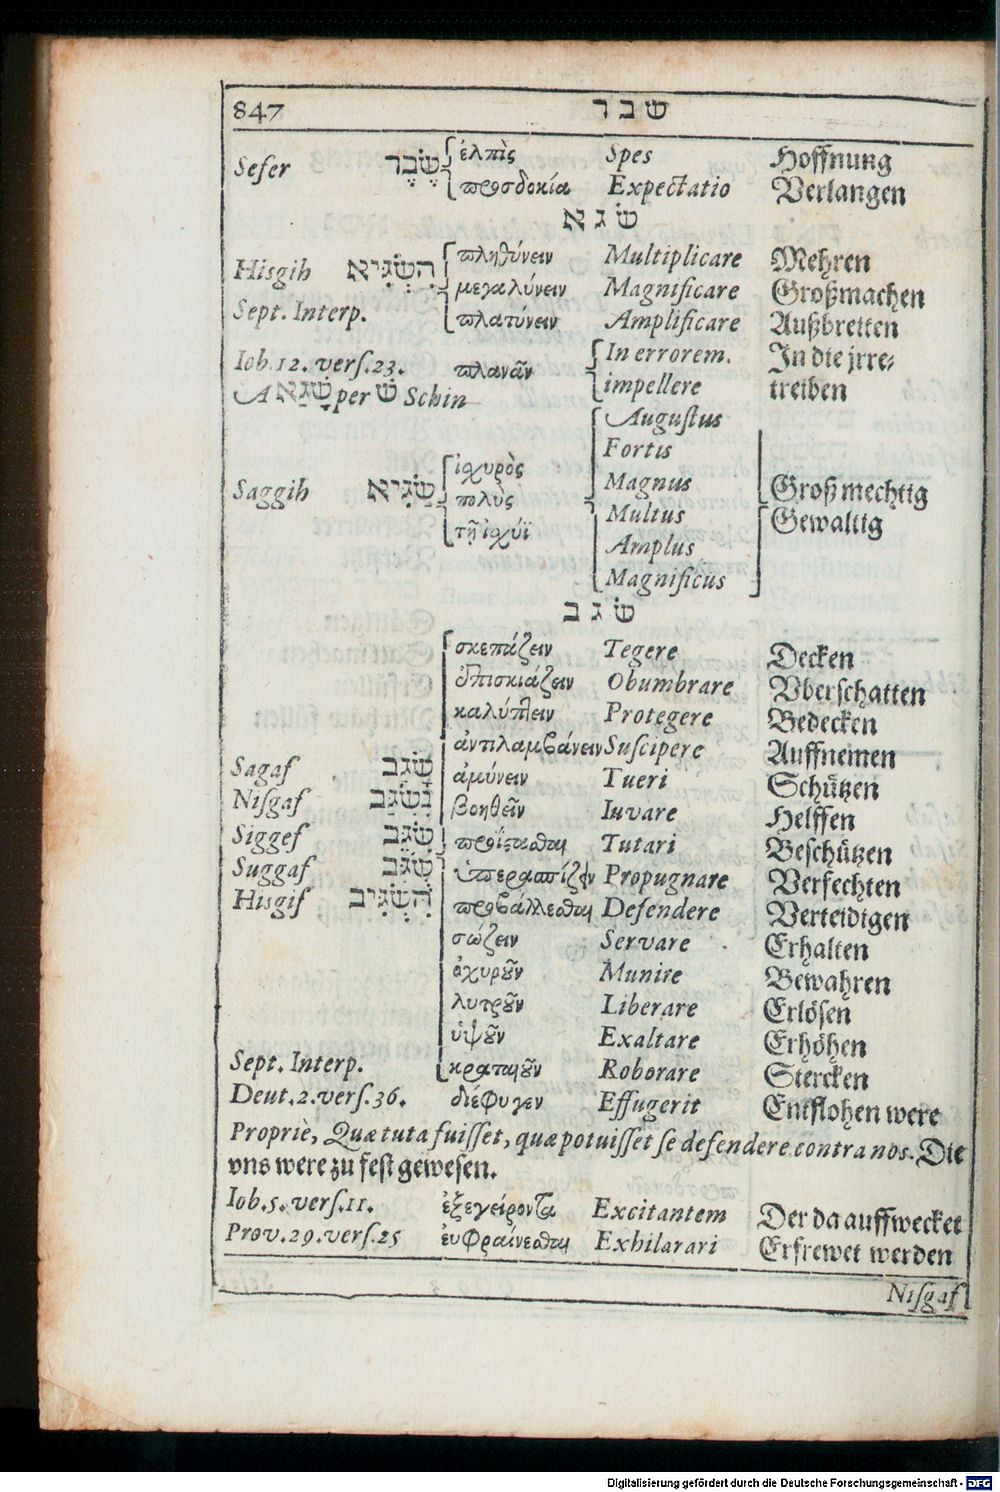 847 שבר
Sefer שֶׂבֶר ἐλπὶς Spes Hoffnung
προσδοκία Expectatio Verlangen
שׂגא
πληθύνειν Multiplicare Mehren
Hisgih הִשְׂגִּיא μεγαλύνειν Magnificare Großmachen
Sept. Interp. πλατύνειν Amplificare Außbretten
Iob. 12. verſ. 23. πλανᾶν In errorem. In die jrre-
A שָׁגָא per שׁ Schin impellere treiben
Auguſtus
Fortis
ἰσχυρὸς Magnus
Saggih שַׂגִּיא πολὺς Multus Groß mechtig
τῇ ἰσχύϊ Amplus Gewaltig
Magnificus
שׂגב
σκεπάζειν Tegere Decken
ἐπισκιάζειν Obumbrare Vberſchatten
καλύπτειν Protegere Bedecken
ἀντιλαμβάνειν Suſcipere Auffnemen
Sagaf שָׂגַב ἀμύνειν Tueri Schützen
Niſgaf נִשְׂגַּב βοηθεῖν Iuvare Helffen
Siggef שִׂגֵּב Tutari Beſchützen
Suggaf שֻׂגַּב ὑπερασπίζειν Propugnare Verfechten
Hisgif הִשְׂגִּיב προβάλλεσθαι Defendere Verteidigen
σώζειν Servare Erhalten
ὀχυροῦν Munire Bewahren
λυτροῦν Liberare Erlöſen
ὑψοῦν Exaltare Erhöhen
Sept. Interp. κραταιοῦν Roborare Stercken
Deut. 2. verſ. 36. διέφυγεν Effugerit Entflohen were
Propriè, Quæ tuta fuiſſet, quæ potuiſſet ſe defendere contra nos. Die
vns were zu feſt geweſen.
Iob. 5. verſ. 11. ἐξεγείροντα Excitantem Der da auffwecket
Prov. 29. verſ. 25 εὐφραίνεσθαι Exhilarari Erfrewet werden
Niſgaf
Digitalisierung gefördert durch die Deutsche Forschungsgemeinschaft - DFG